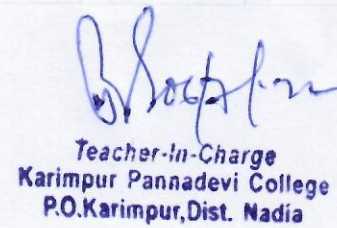 Teacher-In-Charge
Karimpur Pannadevi College
P.O.Karimpur,Dist. Nadia